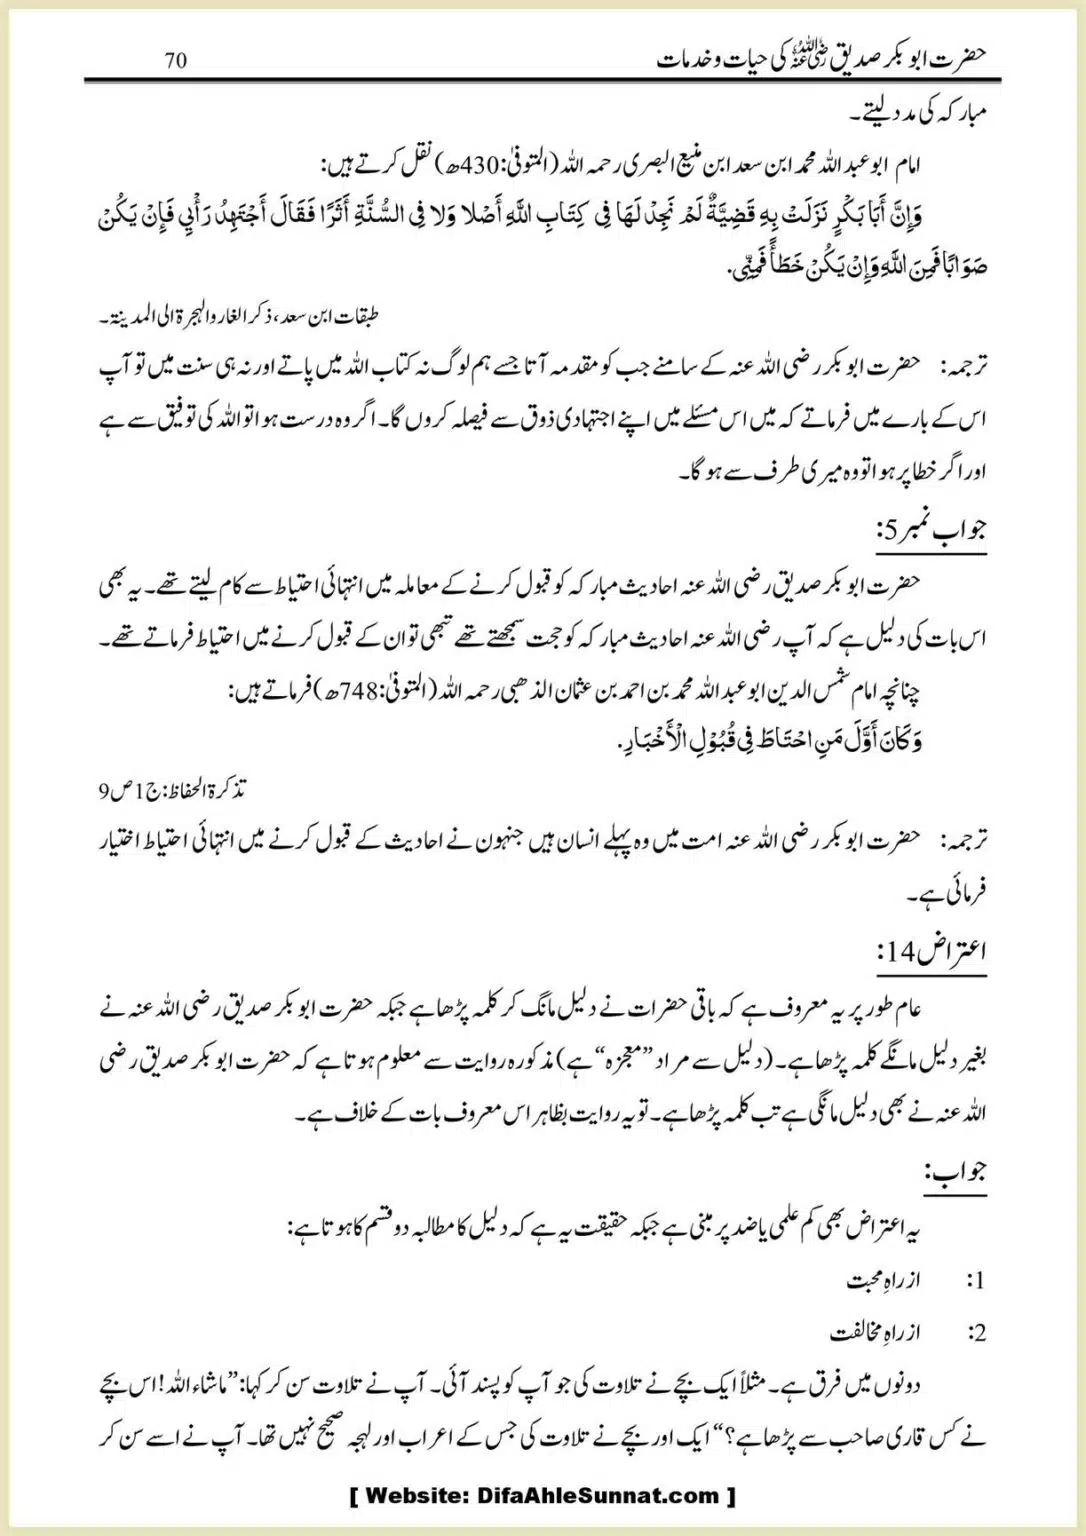 حضرت ابو بکر صدیق رضی اللہ عنہ کی حیات و خدمات 70
مبارکہ کی مدد لیتے۔
امام ابو عبد اللہ محمد ابن سعد ابن منیع البصری رحمہ اللہ (المتوفیٰ:430ھ) نقل کرتے ہیں:
وَإِنَّ أَبَا بَكْرٍ نَزَلَتْ بِهِ قَضِيَّةٌ لَمْ نَجِدْ لَهَا فِي كِتَابِ اللَّهِ أَصْلا وَلا فِي السُّنَّةِ أَثَرًا فَقَالَ أَجْتَهِدُ رَأْيِي فَإِنْ يَكُنْ
صَوَابًا فَمِنَ اللَّهِ وَإِنْ يَكُنْ خَطَأً فَمِنِّي.
طبقات ابن سعد، ذکر الغار والہجرۃ الی المدینۃ۔
ترجمہ: حضرت ابو بکر رضی اللہ عنہ کے سامنے جب کو مقدمہ آتا جسے ہم لوگ نہ کتاب اللہ میں پاتے اور نہ ہی سنت میں تو آپ
اس کے بارے میں فرماتے کہ میں اس مسئلے میں اپنے اجتہادی ذوق سے فیصلہ کروں گا۔ اگر وہ درست ہوا تو اللہ کی توفیق سے ہے
اور اگر خطا پر ہوا تو وہ میری طرف سے ہو گا۔
جواب نمبر5:
حضرت ابو بکر صدیق رضی اللہ عنہ احادیث مبارکہ کو قبول کرنے کے معاملہ میں انتہائی احتیاط سے کام لیتے تھے۔ یہ بھی
اس بات کی دلیل ہے کہ آپ رضی اللہ عنہ احادیث مبارکہ کو حجت سمجھتے تھے تبھی تو ان کے قبول کرنے میں احتیاط فرماتے تھے۔
چنانچہ امام شمس الدین ابو عبد اللہ محمد بن احمد بن عثمان الذھبی رحمہ اللہ (المتوفیٰ:748ھ) فرماتے ہیں:
وَكَانَ أَوَّلَ مَنِ احْتَاطَ فِي قُبُوْلِ الْأَخْبَارِ.
تذکرۃ الحفاظ: ج1ص9
ترجمہ: حضرت ابو بکر رضی اللہ عنہ امت میں وہ پہلے انسان ہیں جنہون نے احادیث کے قبول کرنے میں انتہائی احتیاط اختیار
فرمائی ہے۔
اعتراض14:
عام طور پر یہ معروف ہے کہ باقی حضرات نے دلیل مانگ کر کلمہ پڑھا ہے جبکہ حضرت ابو بکر صدیق رضی اللہ عنہ نے
بغیر دلیل مانگے کلمہ پڑھا ہے۔ (دلیل سے مراد ”معجزہ“ ہے) مذکورہ روایت سے معلوم ہوتا ہے کہ حضرت ابو بکر صدیق رضی
اللہ عنہ نے بھی دلیل مانگی ہے تب کلمہ پڑھا ہے۔ تو یہ روایت بظاہر اس معروف بات کے خلاف ہے۔
جواب:
یہ اعتراض بھی کم علمی یا ضد پر مبنی ہے جبکہ حقیقت یہ ہے کہ دلیل کا مطالبہ دو قسم کا ہوتا ہے:
1: از راہِ محبت
2: از راہِ مخالفت
دونوں میں فرق ہے۔ مثلاً ایک بچے نے تلاوت کی جو آپ کو پسند آئی۔ آپ نے تلاوت سن کر کہا: ”ماشاء اللہ! اس بچے
نے کس قاری صاحب سے پڑھا ہے؟“ ایک اور بچے نے تلاوت کی جس کے اعراب اور لہجہ صحیح نہیں تھا۔ آپ نے اسے سن کر
[ Website: DifaAhleSunnat.com ]